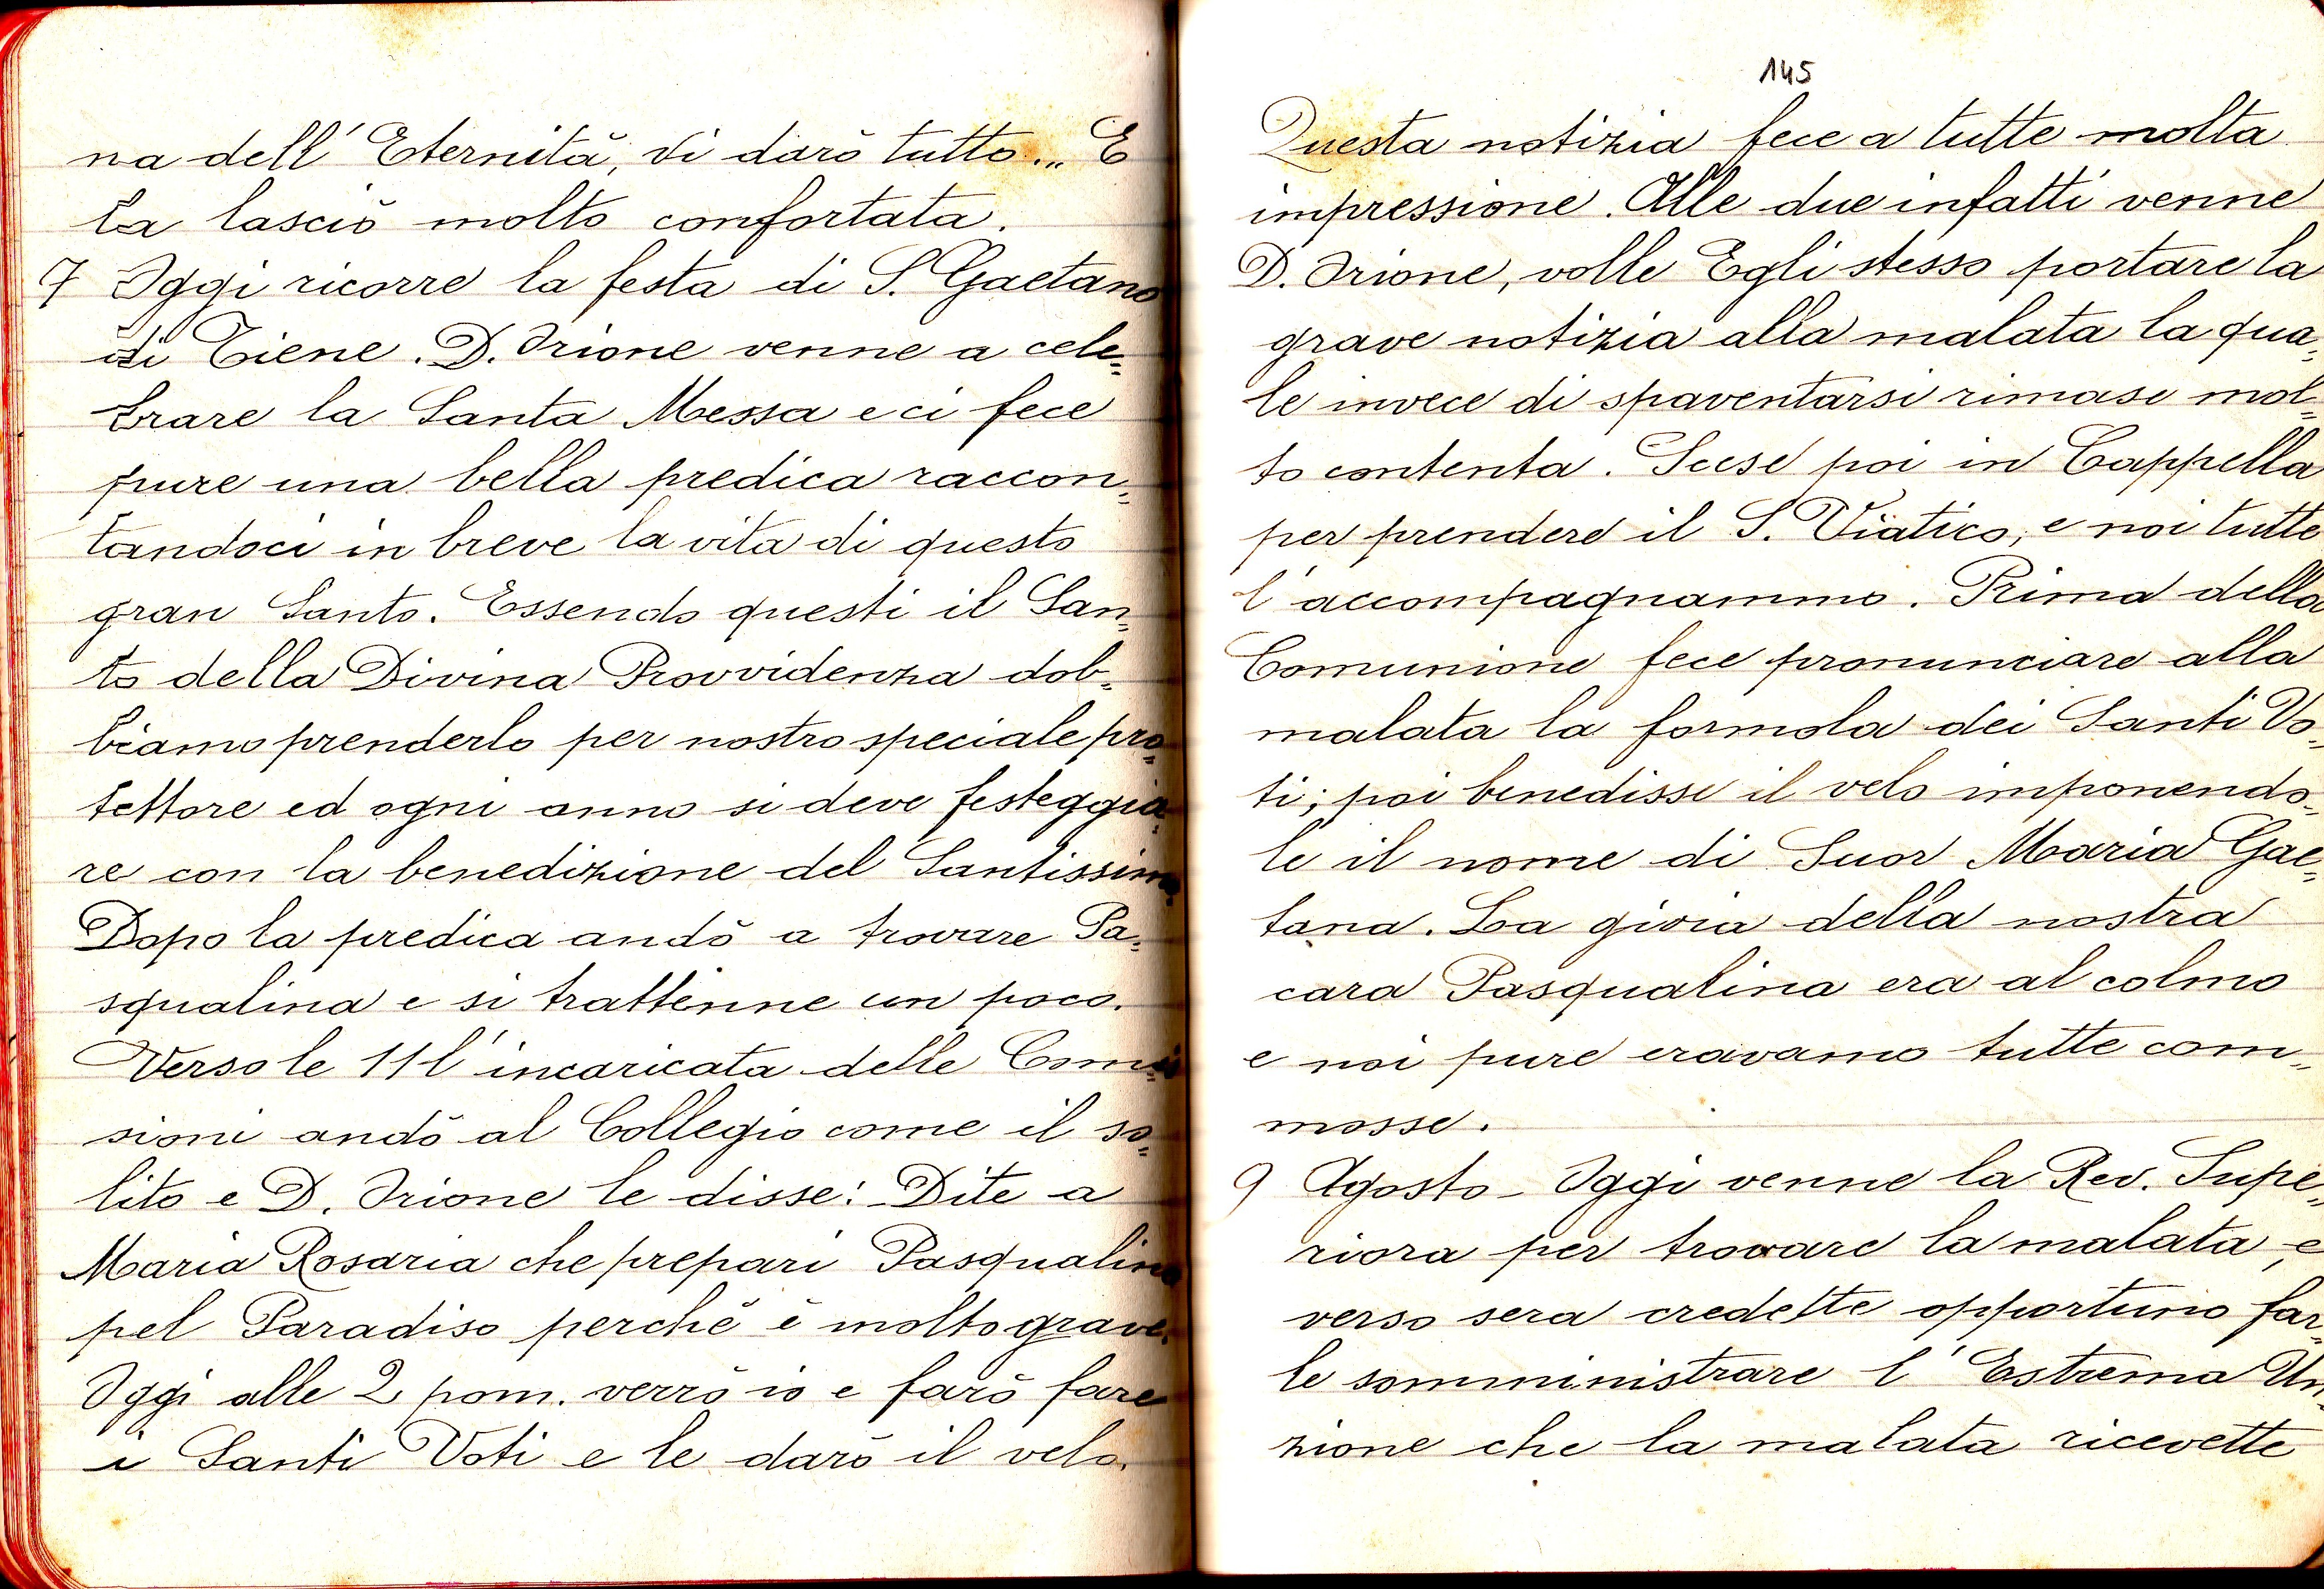 na dell' Eternità, vi darò tutto... E
la lasciò molto confortata.
7 Oggi ricorre la festa di S. Gaetano
di Tiene. D. Orione venne a cele=
brare la Santa Messa e ci fece
pure una bella predica raccon=
tandoci in breve la vita di questo
gran Santo. Essendo questi il San=
to della Divina Provvidenza dob=
biamo prenderlo per nostro speciale pro=
tettore ed ogni anno si deve festeggia=
re con la benedizione del Santissimo.
Dopo la predica andò a trovare Pa=
squalina e si trattenne un poco.
Verso le 11 l'incaricata delle Comis=
sioni andò al Collegio come il so=
lito e D. Orione le disse: Dite a
Maria Rosaria che prepari Pasqualina
pel Paradiso perchè è molto grave.
Oggi alle 2 pom. verrò io e farò fare
i Santi Voti e le darò il velo.
145
Questa notizia fece a tutte molta
impressione. Alle due infatti venne
D. Orione, volle Egli stesso portare la
grave notizia alla malata la qua=
le invece di spaventarsi rimase mol=
to contenta. Scese poi in Cappella
per prendere il S. Viatico, e noi tutte
l'accompagnammo. Prima della
Comunione fece pronunciare alla
malata la formola dei Santi Vo=
ti; poi benedisse il velo imponendo=
le il nome di Suor Maria Gae=
tana. La gioia della nostra
cara Pasqualina era al colmo
e noi pure eravamo tutte com=
mosse.
9 Agosto - Oggi venne la Rev. Supe=
riora per trovare la malata, e
verso sera credette opportuno far=
le somministrare l'Estrema Un=
zione che la malata ricevette